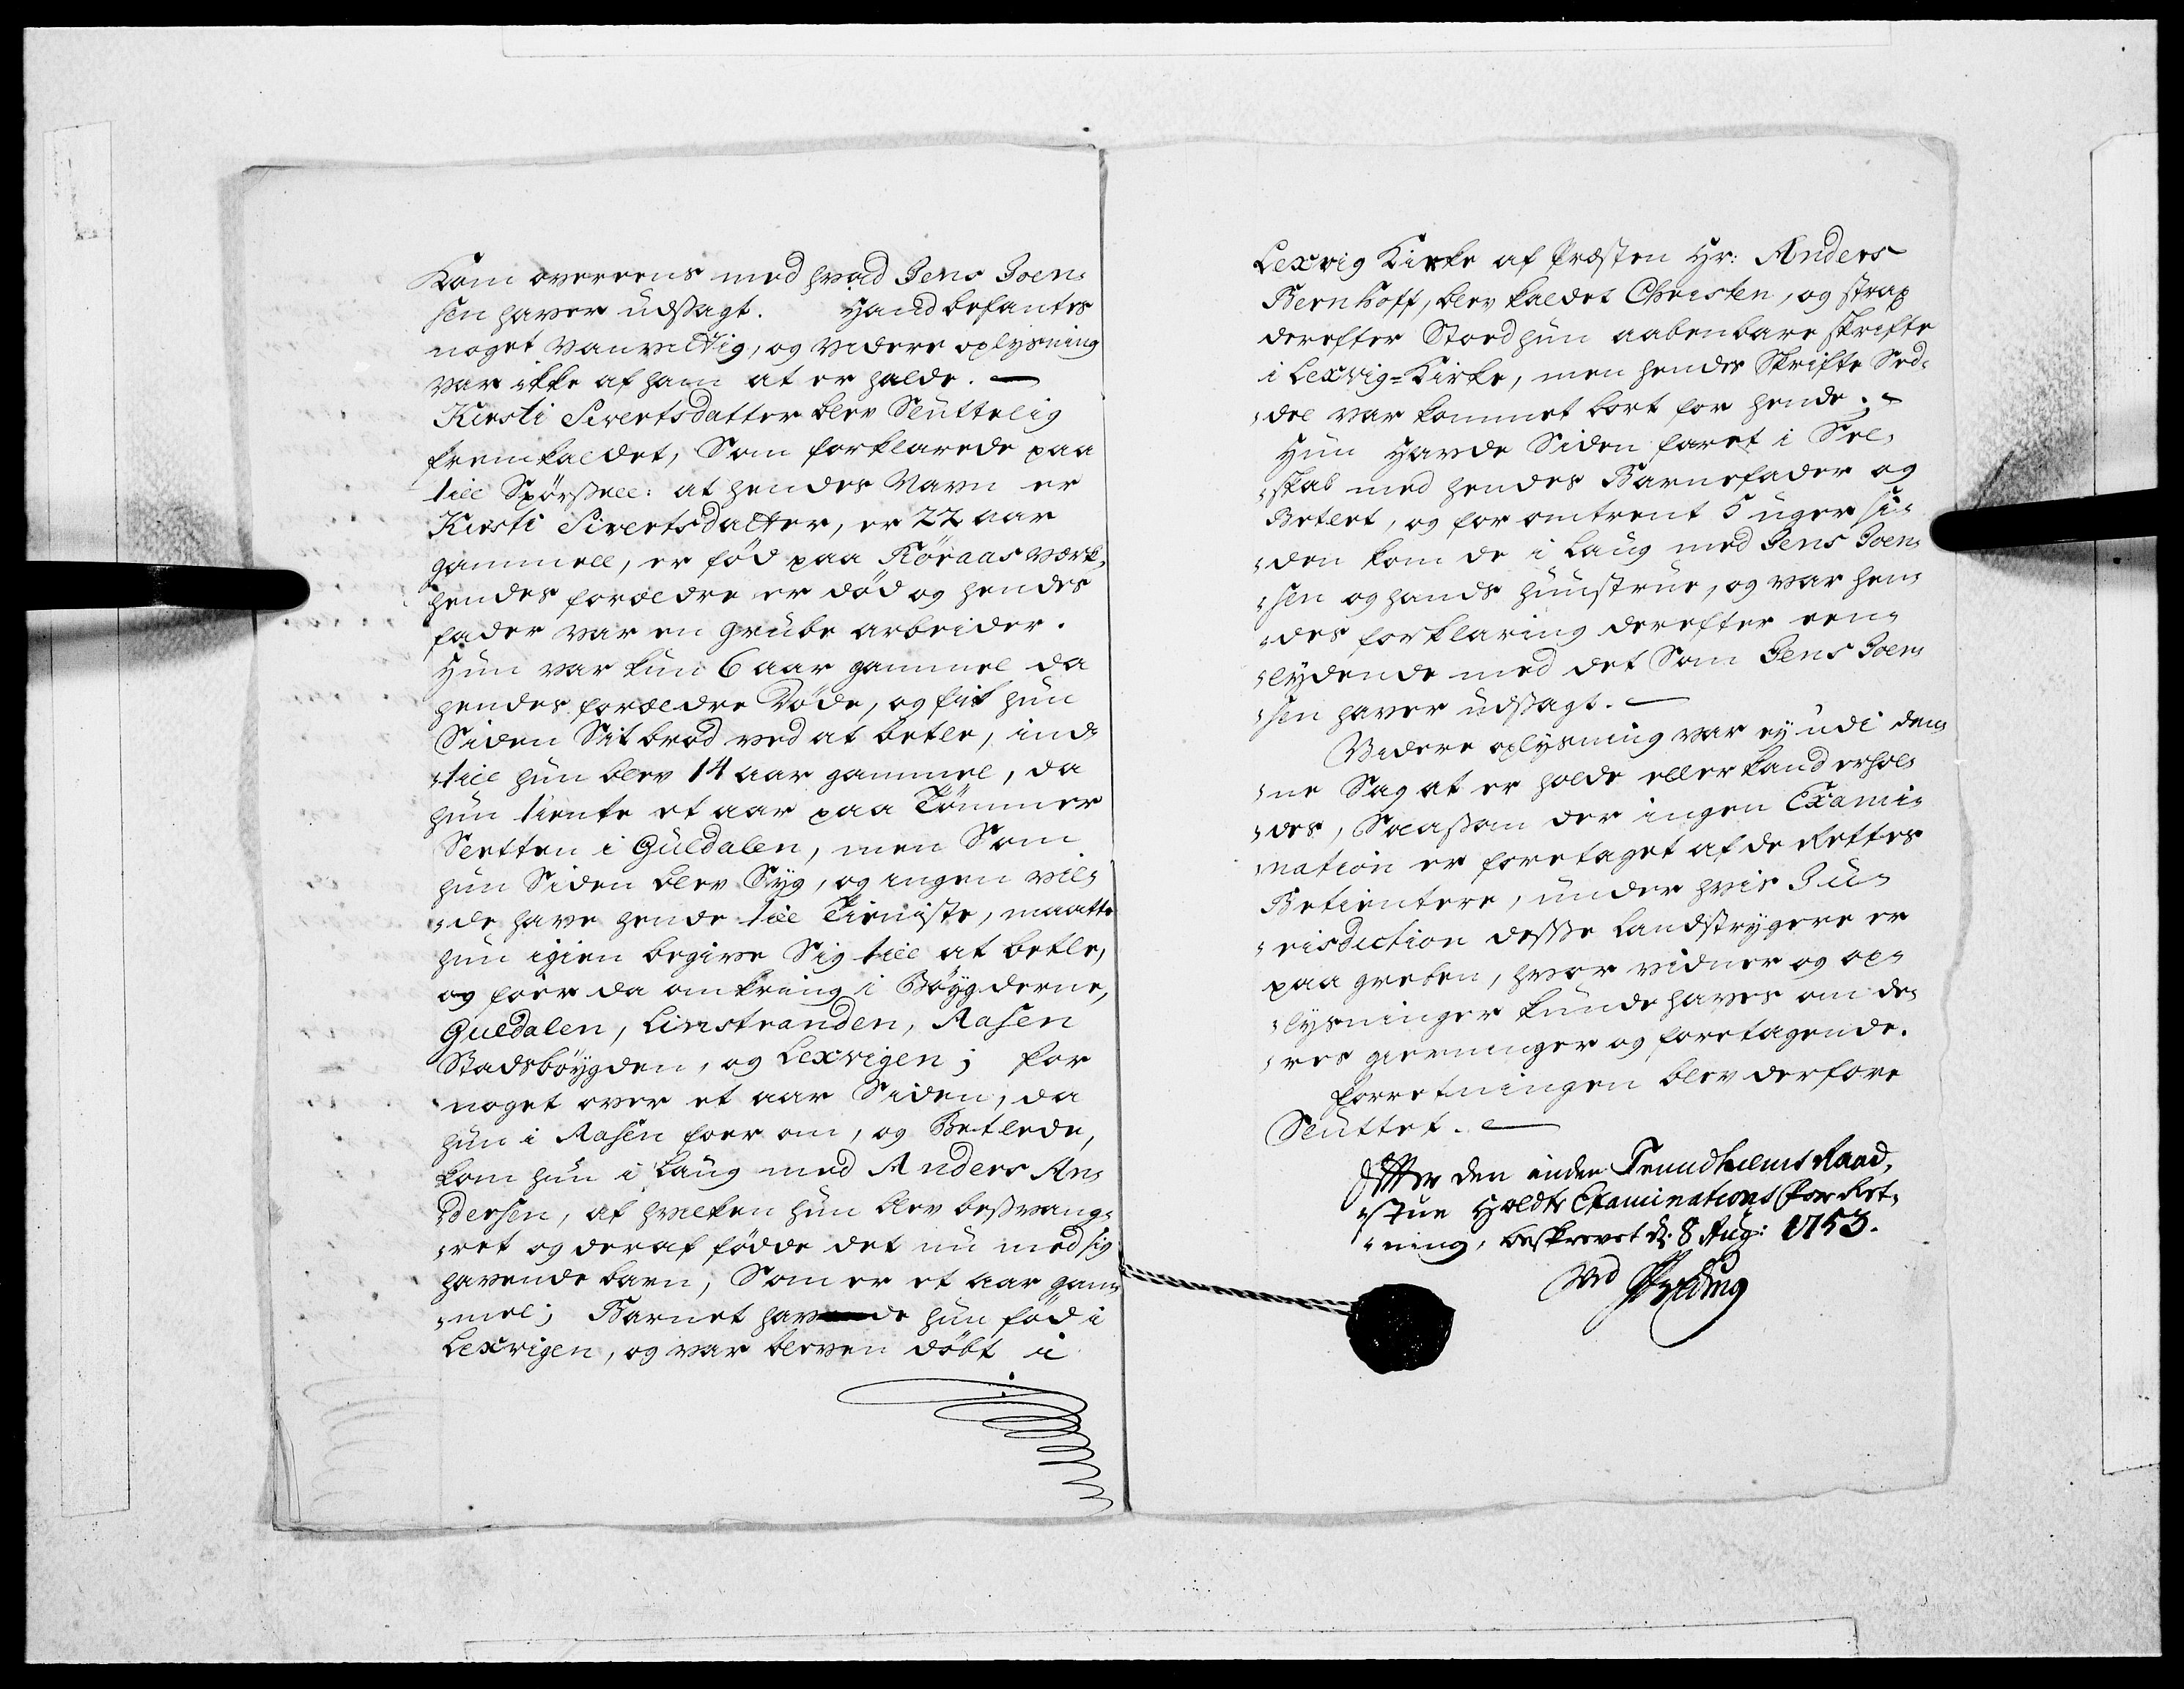 Kom overeens med hvad Jens Joen-
sen haver udsagt. Hand befantes
noget vanvittig, og videre oplysning
var ikke af ham at er holde. —
Kirsti Sivertsdatter blev Sluttelig
fremkaldet, Som forklarede paa
till Spørsell: at hendes Navn er
Kirsti Sivertsdatter, er 22 aar
gammell, er fød paa Røraas Værk,
hendes forældre er død og hendes
fader var en grube arbeider.
Hun var kun 6 aar gammel da
hendes forældre Døde, og fik hun
Siden Sit brød ved at betle, ind-
till hun blev 14 aar gammel, da
hun tiente et aar paa Tømmer
Sletten i Guldalen, men Som
hun Siden blev Syg, og ingen vil-
de have hende till Tieniste, maatte
hun igien begive Sig till at betle,
og foer da omkring i Bøygderne,
Guldalen, Linstranden, Aasen
Stadsbøygden, og Lexvigen; for
noget over et aar Siden, da
hun i Aasen foer om, og Betlede,
kom hun i Laug med Anders An-
dersen, af hvilken hun blev besvang-
ret og deraf fødde det nu med sig
havende barn, Som er et aar gam-
mel; Barnet havde hun fød i
Lexvigen, og var bleven døbt i
Lexvig Kirke af Præsten Hr: Anders
Bernhoff, blev kaldet Christen, og strax
derefter Stoed hun aabenbare skrifte
i Lexvig=Kirke, men hendes Skrifte Sed-
del var kommet bort for hende; —
Hun Havde Siden faret i Sel-
skab med hendes Barnefader og
Betlet, og for omtrent 5 uger si-
den kom de i Laug med Jens Joen-
sen og hands huustrue, og var hen-
des forklaring derefter een-
lydende med det Som Jens Joen-
sen haver udsagt. —
Videre oplysning var ey udi den-
ne Sag at er holde eller kand erhol-
des, Saasom der ingen Exami-
nation er foretaget af de Rettes
Betientere, under hvis Ju-
risdiction disse Landstrygere er
paa greben, hvor vidner og op-
lysninger kunde haves om de-
res gierninger og foretagende.
Forretningen blev derfore
Sluttet. —
Efter den inden Trundhiems Raad-
stue Holdte Examinations For Ret-
ning, beskrevet d. 8 Aug: 1753.
Ved